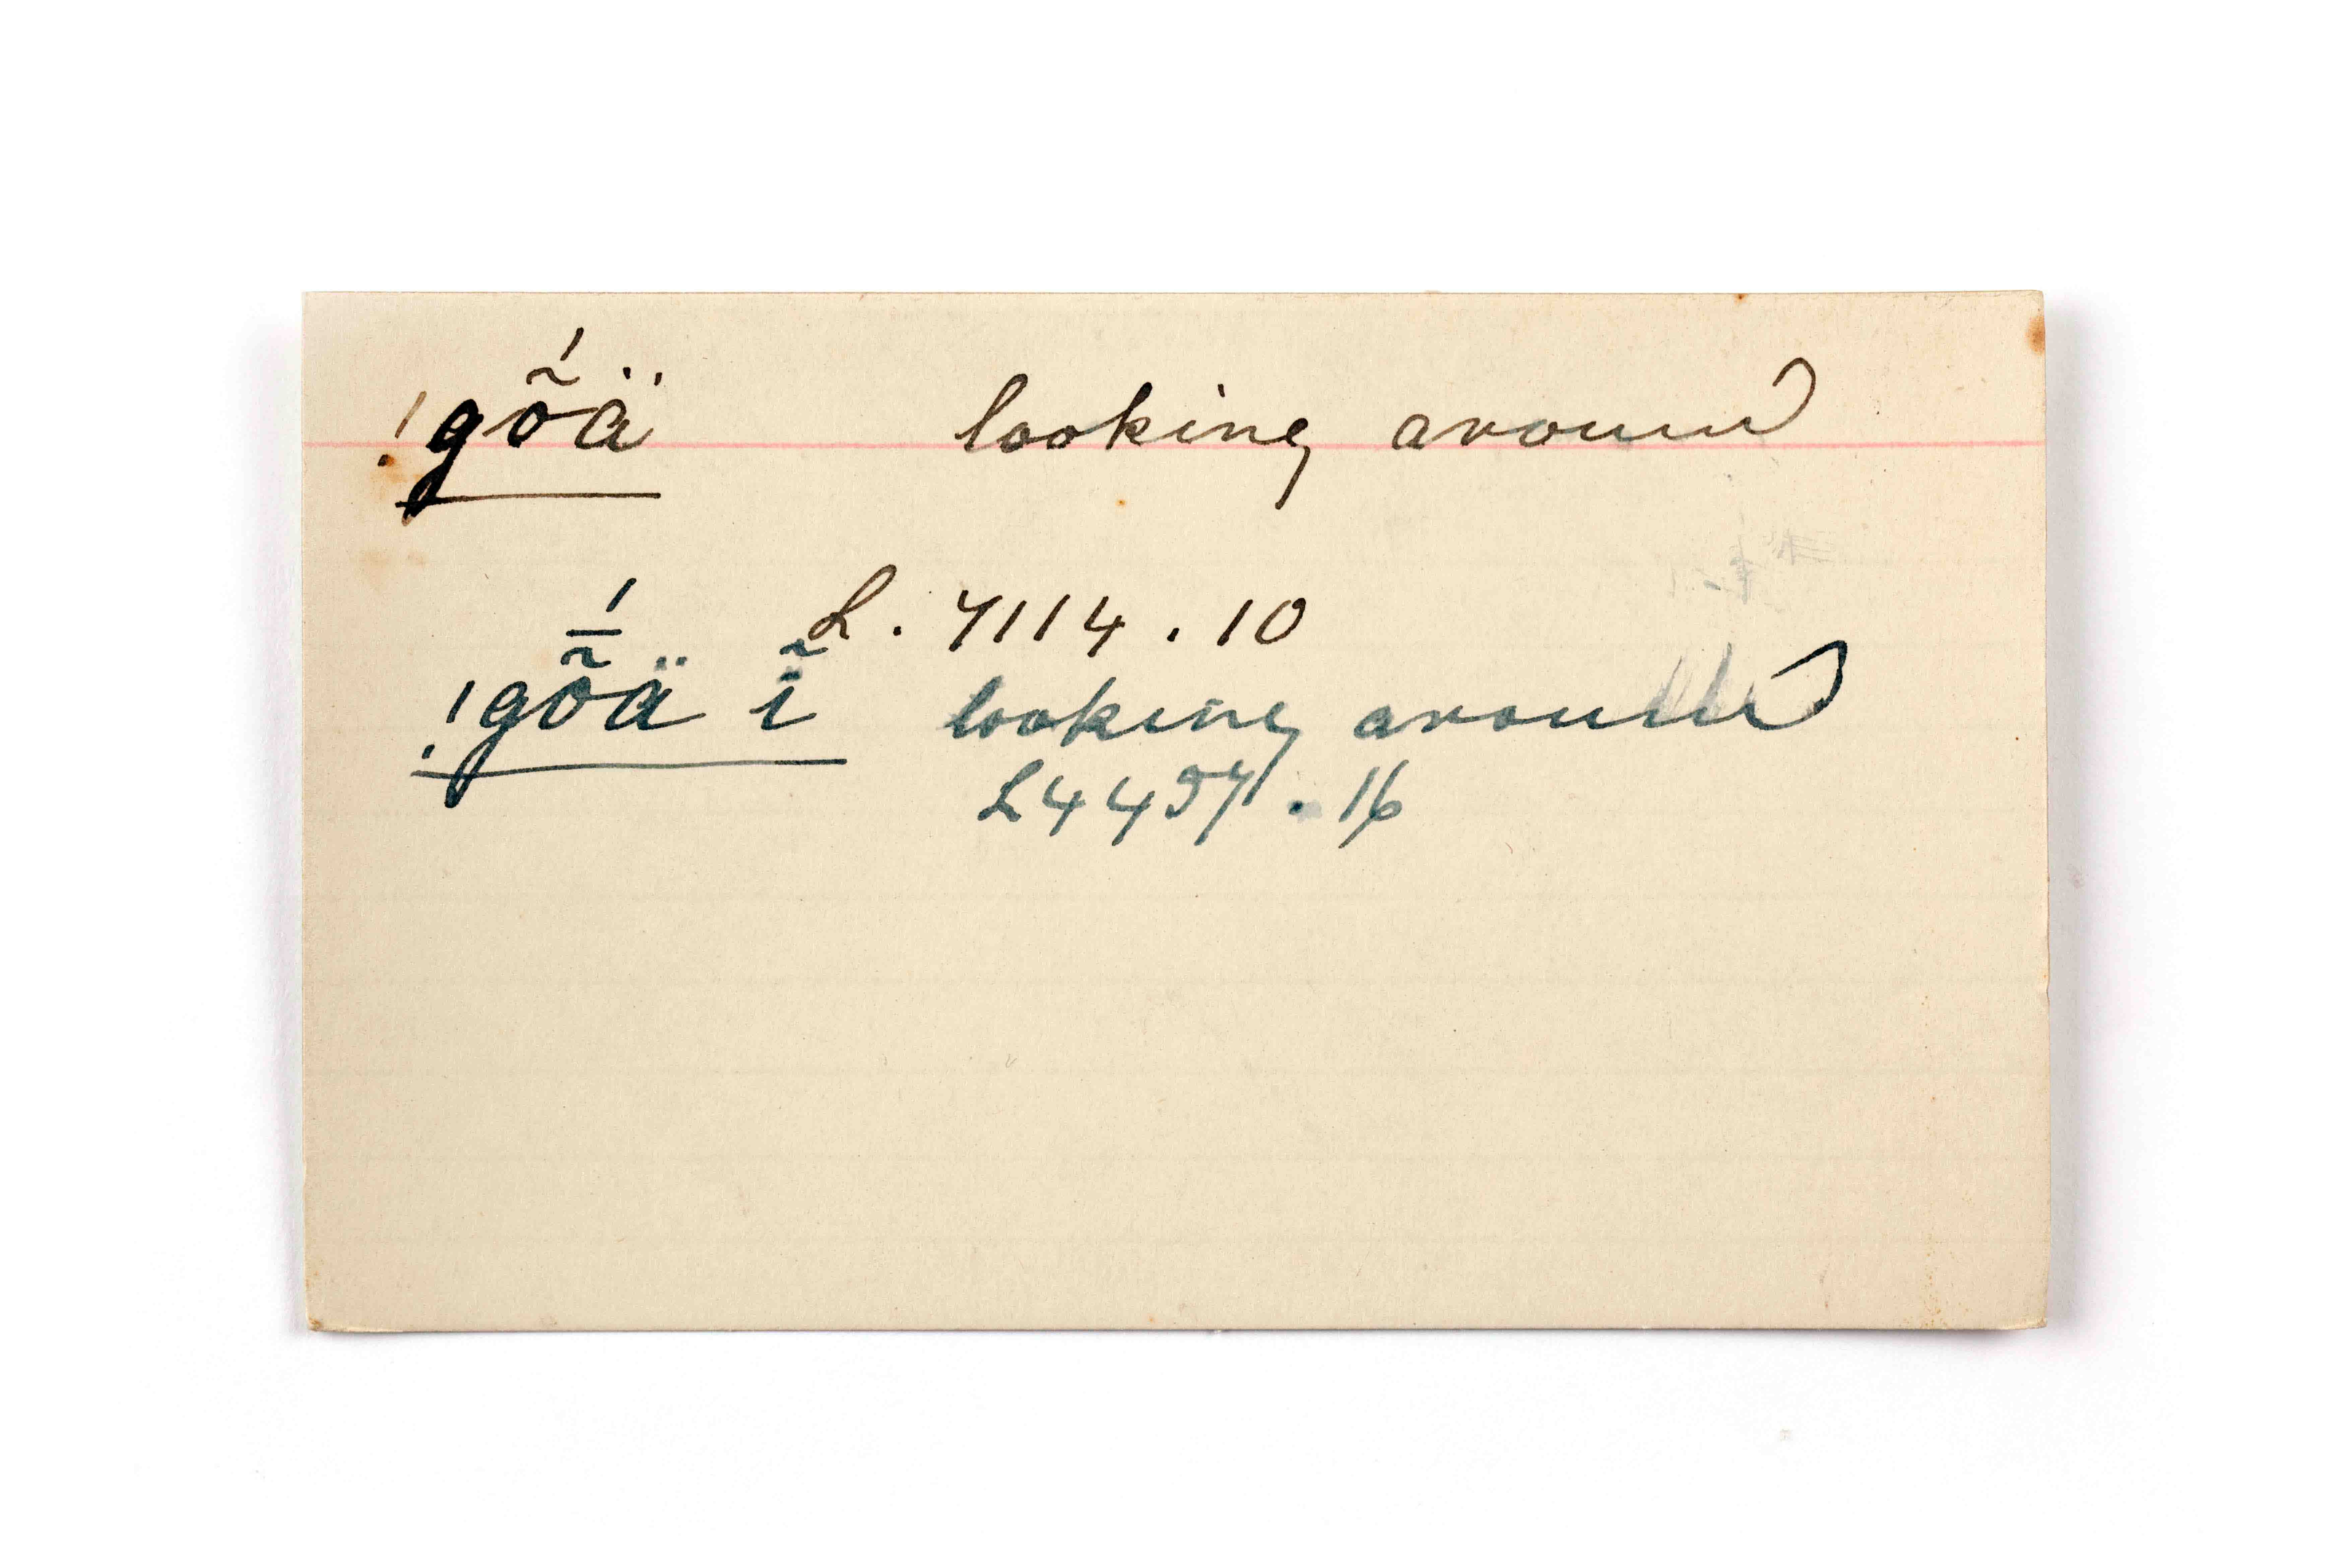 !gṍä looking around
L. 7114. 10
!gṍ̄ä ĩ looking around
L 4457. 16